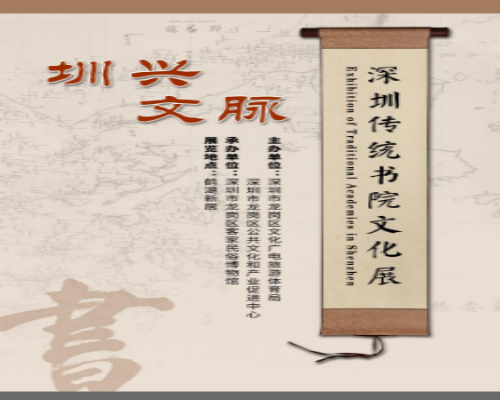 圳兴
文脉
深圳传统书院文化展
Exhibition of Traditional Academies in Shenzhen
主办单位：深圳市龙岗区文化广电旅游体育局
深圳市龙岗区公共文化和产业促进中心
承办单位：深圳市龙岗区客家民俗博物馆
展览地点：鹤湖新居
書